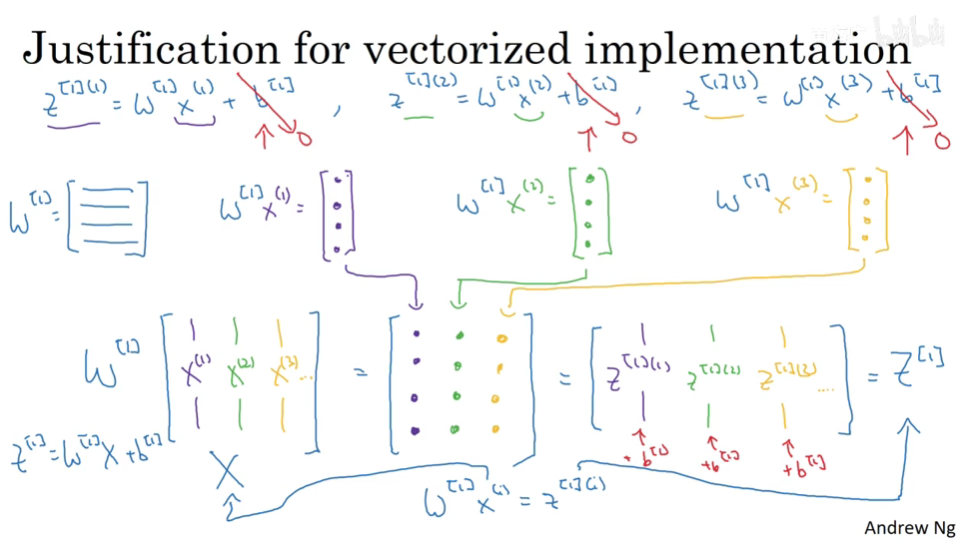 Justification for vectorized implementation
z^[1](1) = W^[1] x^(1) + b^[1] , z^[1](2) = W^[1] x^(2) + b^[1] , z^[1](3) = W^[1] x^(3) + b^[1]
0 0 0
W^[1] = W^[1] x^(1) = W^[1] x^(2) = W^[1] x^(3) =
W^[1] [ x^(1) x^(2) x^(3) ... ] = = [ z^[1](1) z^[1](2) z^[1](3) .... ] = Z^[1]
+ b^[1] + b^[1] + b^[1]
z^[1] = W^[1] X + b^[1]
X
W^[1] x^(i) = z^[1](i)
Andrew Ng